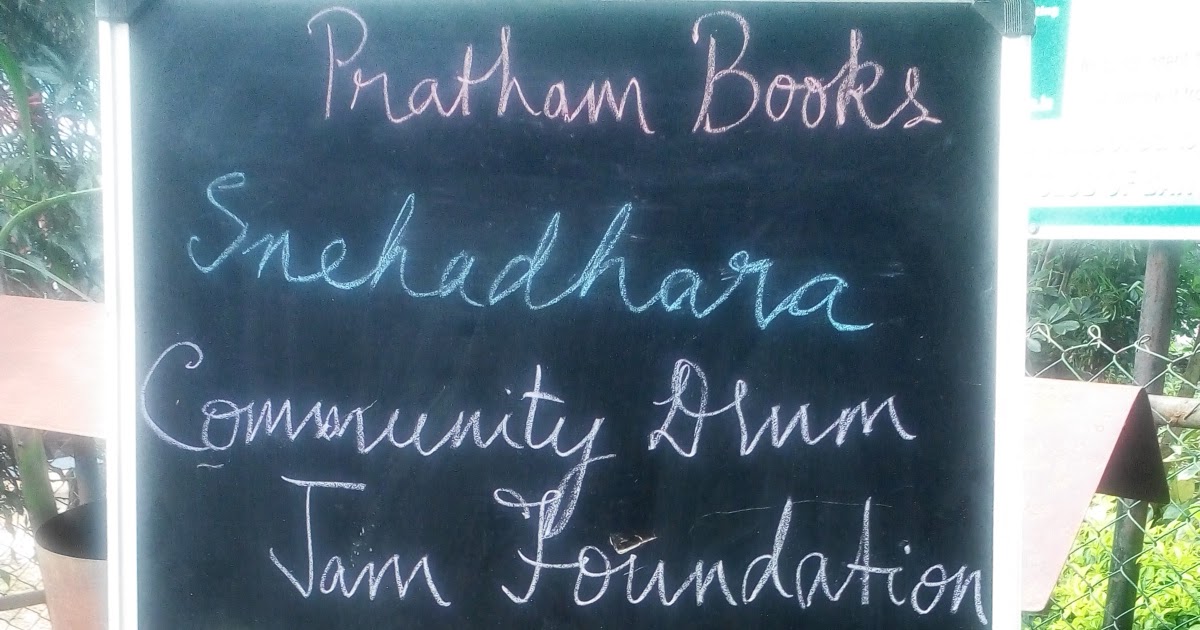 Pratham Books
Snehadhara
Community Drum
Jam Foundation